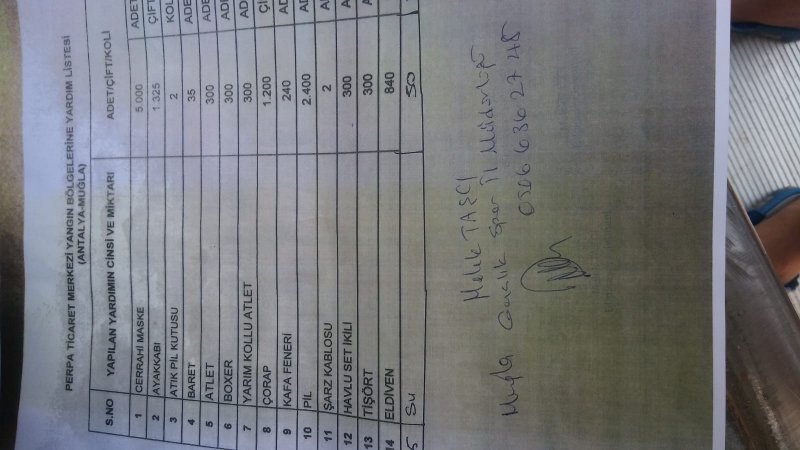 PERPA TİCARET MERKEZİ YANGIN BÖLGELERİNE YARDIM LİSTESİ
(ANTALYA-MUĞLA)
S.NO YAPILAN YARDIMIN CİNSİ VE MİKTARI ADET/ÇİFT/KOLİ
1 CERRAHİ MASKE 5.000 ADET
2 AYAKKABI 1.325 ÇİFT
3 ATIK PİL KUTUSU 2 KOL
4 BARET 35 ADE
5 ATLET 300 ADE
6 BOXER 300 ADE
7 YARIM KOLLU ATLET 300 AD
8 ÇORAP 1.200 Çİ
9 KAFA FENERİ 240 AD
10 PİL 2.400 AD
11 ŞARZ KABLOSU 2 A
12 HAVLU SET İKİLİ 300 A
13 TİŞÖRT 300 A
14 ELDİVEN 840
5 Su 50
Melik TAŞCI
Muğla Gençlik Spor İl Müdürlüğü
0506 636 27 48